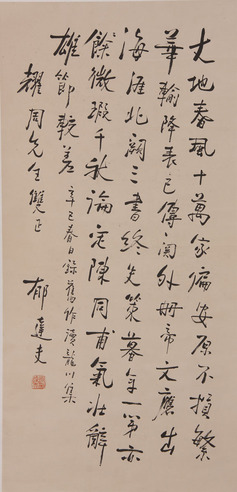 大地春風十萬家偏安原不損繁
華輸降表已傳關外册帝文應出
海涯北闕三書終失策暮年一第亦
餘微瑕千秋論定陳同甫氣壯辭
雄節較差 辛巳春日錄舊作讀龍川集
耀周先生雙正
郁達夫